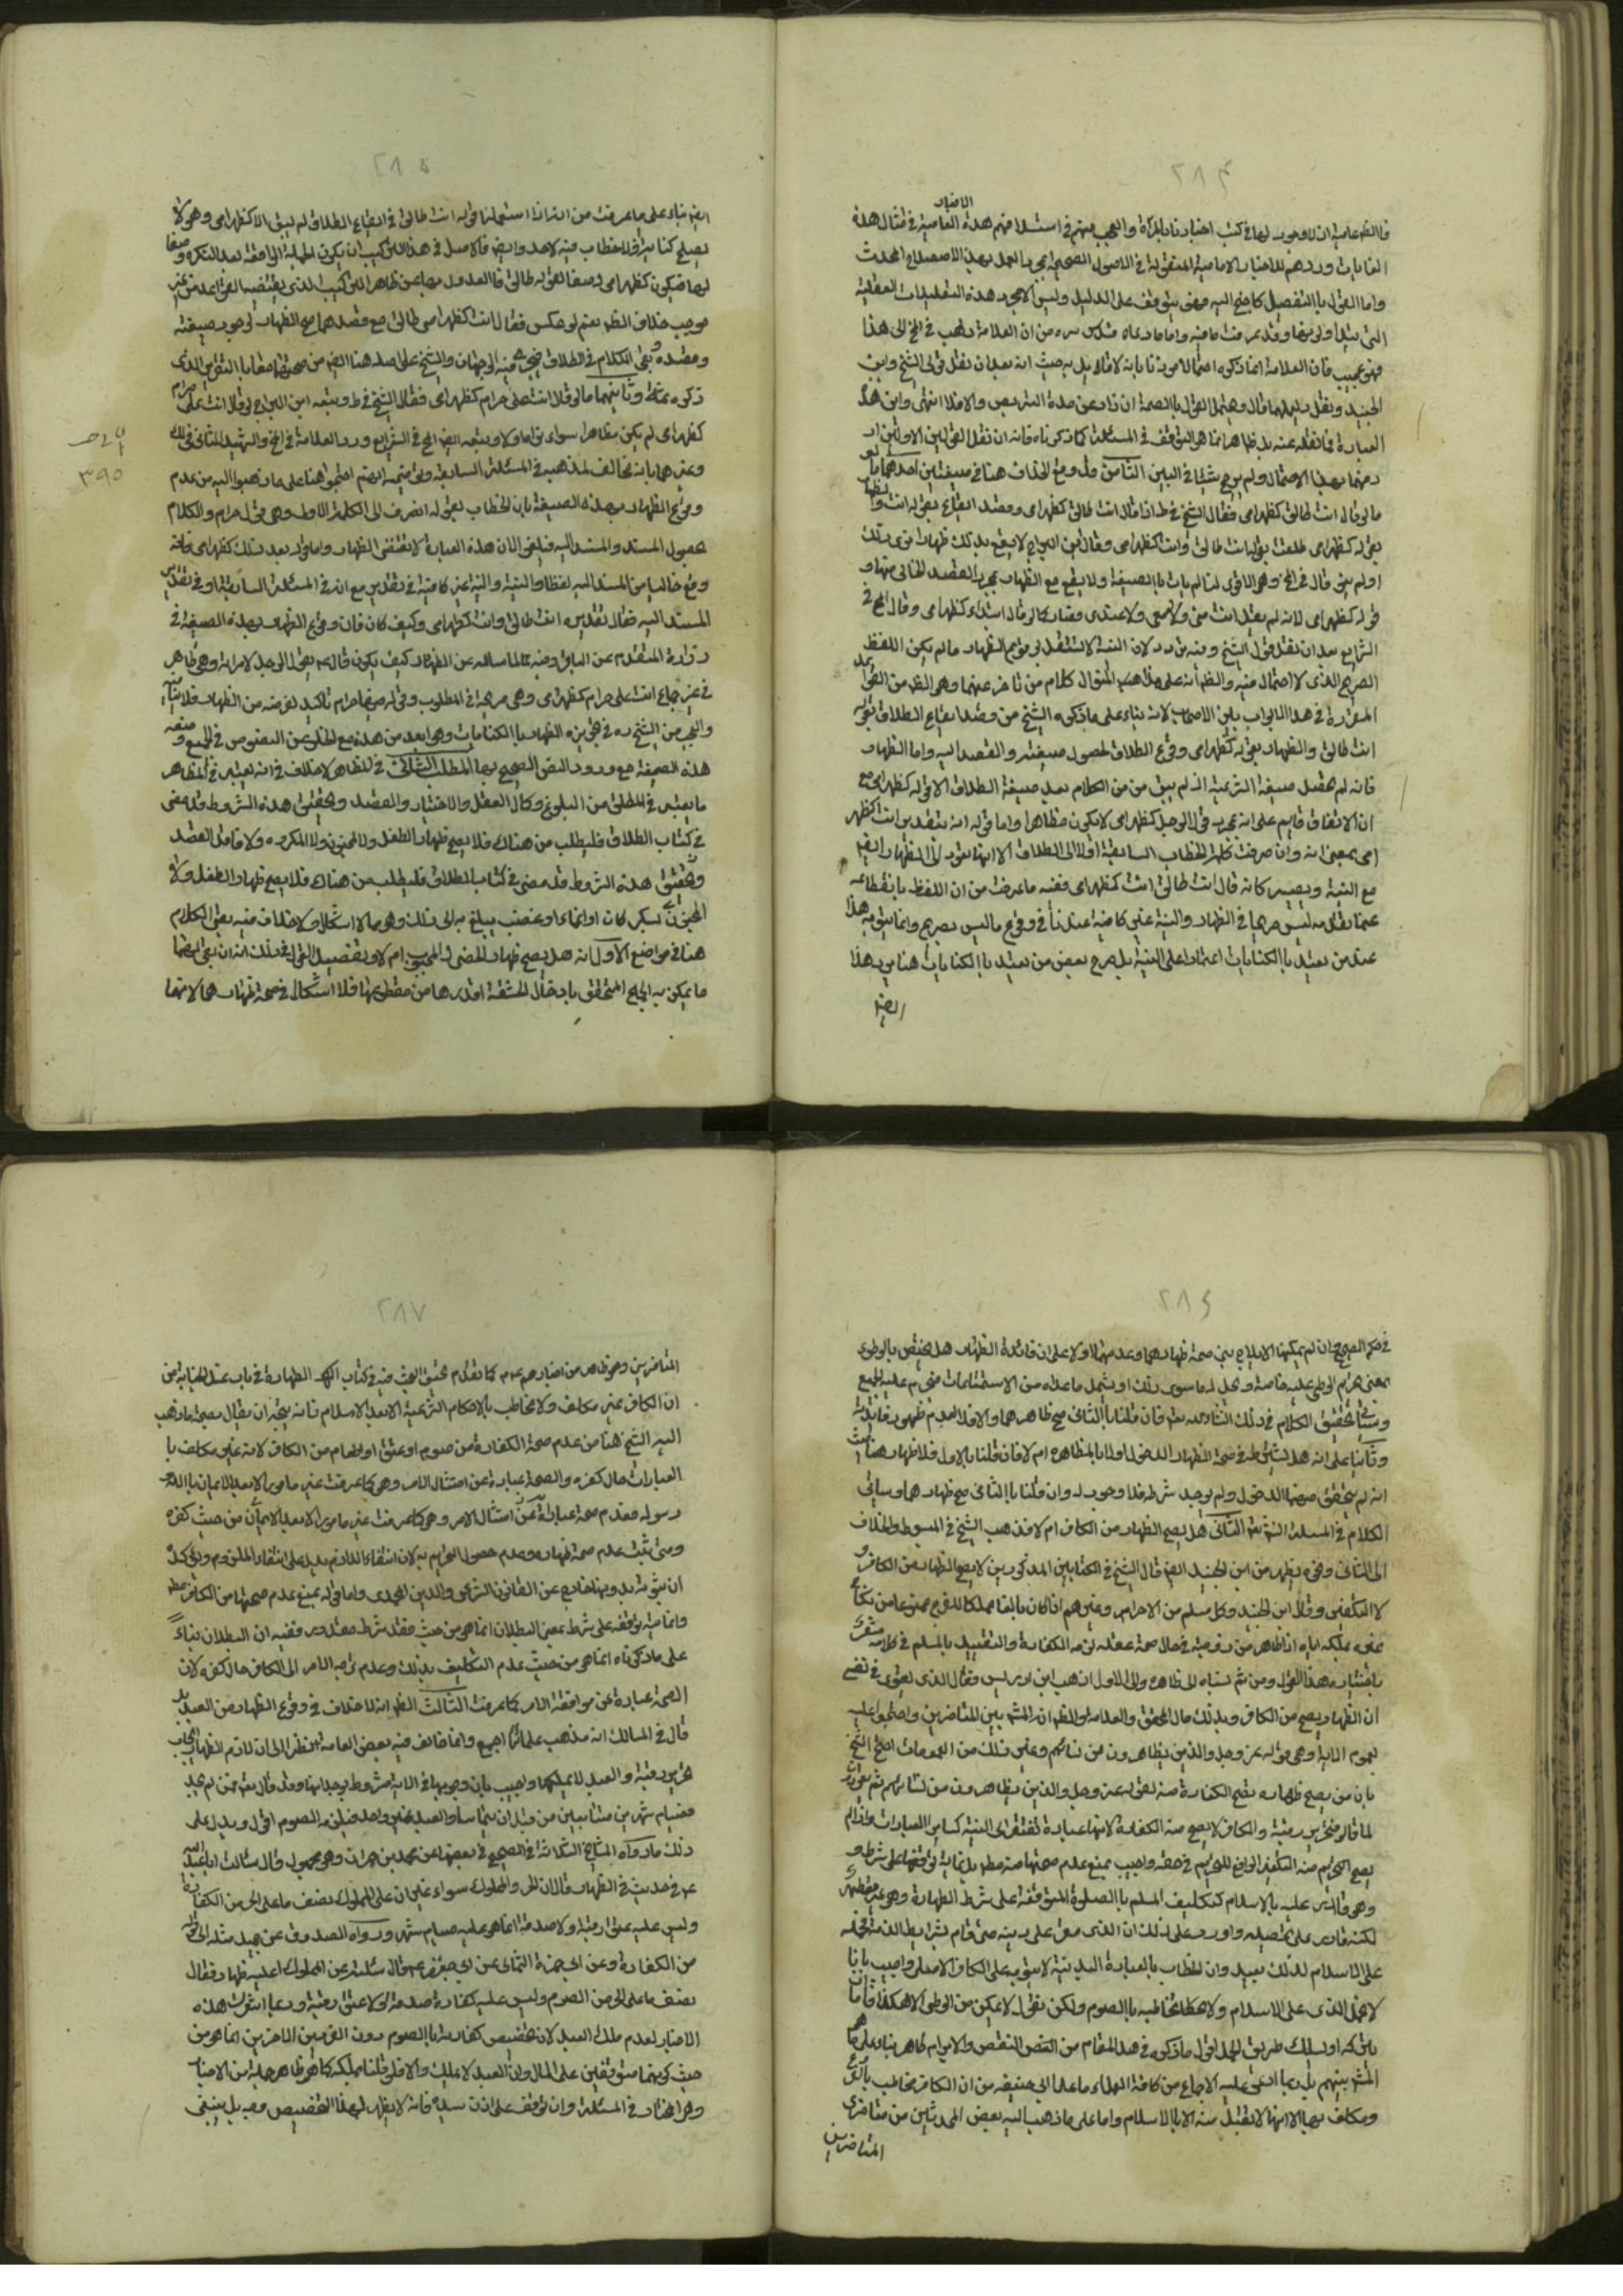 ٢٨٤
الاخبار
فالظ عامية ان لا وجود لها في كتب اخبارنا بالمرة والعجب منهم في استسلافهم هذه العامية في مثال هذه
واما القول بالتفصيل كما جنح اليه فهو يتوقف على الدليل وليس الا مجرد هذه التعليلات العقلية
فهو عجيب فان العلامة انما ذكره احتمالا لا قال به حيث انه بعد ان نقل قول الشيخ وابن
الجنيد ونقل دليلهما قال ويحتمل القول بالصحة ان زاد عن مدة التربص والا فلا انتهى واين هذه
العبارة مما نقله عنه بل ظاهر انما هو التوقف في المسئلة كما ذكرناه فانه ان نقل القولين الاولين
بهذا الاحتمال ولم يرجح شيئا في البين الثامن قد وقع الخلاف هنا في صيغتين احدهما
ما لو قال انت طالق كظهر امي فقال الشيخ في ط اذا قال انت طالق كظهر امي وقصد ايقاع بقوله انت
بقوله كظهر امي طلقت بقوله انت طالق وانت كظهر امي وقال ابن البراج لا يقع بذلك ظهار نوى ذلك
او لم ينو قال في المخ وهو الاقوى لنا لم يات بالصيغة ولا يقع مع الظهار بمجرد القصد الخالي عنها و
قوله كظهر امي لانه لم يقل انت مني ولا معي ولا عندي فصار كما لو قال ابتداء كظهر امي وقال المح في
الشرايع بعد ان نقل قول الشيخ وفيه تردد لان النية لا تستقل بوقوع الظهار ما لم يكن اللفظ
الصريح الذي لا احتمال فيه والظ انه على هذا المنوال كلام من تاخر عنهما وهو الظ من القواعد
المقررة في هذا الباب بين الاصحاب لانه بناء على ما ذكره الشيخ من وقصد ايقاع الطلاق بقوله
انت طالق والظهار بقوله كظهر امي وقوع الطلاق لحصول صيغته والقصد اليه واما الظهار
فانه لم تحصل صيغة الشرعية اذ لم يبق من الكلام بعد صيغة الطلاق الا قوله كظهر امي مع
ان الاتفاق قايم على انه بمجرد قول الرجل كظهر امي لا يكون مظاهرا واما قوله انه بتقدير انت كظهر
امي بمعنى انه وان صرفت كلمة الخطاب السابقة اولا الى الطلاق الا انها تعود الى الظهار ايضا
مع النية ويصير كانه قال انت طالق انت كظهر امي ففيه ما عرفت من ان اللفظ بانقطاعه
عما تقدمه ليس صريحا في الظهار والنية غير كافية عندنا في وقوع ما ليس بصريح وانما يتوجه هذا
عند من يعتد بالكنايات اعتمادا على النية بل صرح بعض من يعتد بالكنايات هنا برد هذا
ايضا
٢٨٥
ايضا بناء على ما عرفت من انه اذا استعملنا قوله انت طالق في ايقاع الطلاق لم يبق الا كظهر امي وهو لا
يصلح كناية اذ لا خطاب فيه لاحد وايض فالاصل في هذا التركيب ان يكون الجملة الواقعة بعد النكرة وصفا
لها فيكون كظهر امي وصفا لقوله طالق فالعدول بها عن ظاهر التركيب الذي يقتضيه القواعد من غير
موجب خلاف الظ نعم لو عكس فقال انت كظهر امي طالق مع قصدهما صح الظهار لوجود صيغته
وقصده وبقي الكلام في الطلاق فيجيء فيه الوجهان والشيخ على اصله هنا ايض من صحتهما معا بالتقريب الذي
ذكره ثمة وثانيهما ما لو قال انت علي حرام كظهر امي فقال الشيخ في ط وتبعه ابن البراج لو قال انت علي حرام
كظهر امي لم يكن مظاهرا سواء نواه او لا وتبعه ايض المح في الشرايع ورد العلامة في المخ والشهيد الثاني في لك
وغيرهما بانه مخالف لمذهبه في المسئلة السابقة احتجوا هنا على ما ذهبوا اليه من عدم
وقوع الظهار بهذه الصيغة بان الخطاب بقوله انصرف الى الكلمة الاولى وهي قوله حرام والكلام
بحصول المسند والمسند اليه فيلغى الان هذه العبارة لا تقتضي الظهار واما قوله بعد ذلك كظهر امي فانه
وقع خاليا من المسند اليه لفظا والنية غير كافية في تقديره مع انه في المسئلة السابقة اوفى تقدير
المسند اليه فقال تقديره انت طالق وانت كظهر امي وكيف كان فان وقوع الظهار بهذه الصيغة في
زرارة المتقدم عن الباقر وفيه لما ساله عن الظهار كيف يكون قال ع يقول الرجل لامراته وهي طاهر
في غير جماع انت علي حرام كظهر امي وهي صريحة في المطلوب وقوله فيها حرام تاكيد لغرضه من الظهار فلا ينافيه
والعجب من الشيخ ره في تجويزه الظهار بالكنايات وهو ابعد من هذه مع الخلو عن النصوص في الجميع ومنعه
هذه الصيغة مع ورود النص الصحيح بها المطلب الثاني في المظاهر لا خلاف في انه يعتبر في المظاهر
ما يعتبر في المطلق من البلوغ وكمال العقل والاختيار والقصد وتحقيق هذه الشروط قد مضى
في كتاب الطلاق فليطلب من هناك فلا يصح ظهار الطفل ولا المجنون ولا المكره ولا فاقد القصد
وتحقيق هذه الشروط قد مضى في كتاب الطلاق فليطلب من هناك فلا يصح ظهار الطفل ولا
المجنون بسكر كان او اغماء او غضب يبلغ به الى ذلك وهو مما لا اشكال ولا خلاف فيه بقي الكلام
هنا في مواضع الاول انه هل يصح ظهار الخصي والمجبوب ام لا وتفصيل القول في ذلك انه ان بقي لهما
ما يمكن به الجماع المتحقق بادخال الحشفة او قدرها من مقطوعها فلا اشكال في صحة ظهارهما لانهما
٣٩٥
٢٨٦
في حكم الصحيح وان لم يمكنهما الايلاج بني صحة ظهارهما وعدمها اولا على ان فائدة الظهار هل يختص بالوطوء
بمعنى تحريم الوطي عليه خاصة ويحل له ما سوى ذلك او يشمل ما عداه من الاستمتاعات فيحرم عليه الجميع
وسياتي تحقيق الكلام في ذلك ان شاء الله تعالى فان قلنا بالثاني صح ظهارهما والا فلا لعدم ظهور فايدته
وثانيا على انه هل يشترط في صحة الظهار الدخول اولا بالمظاهرة ام لا فان قلنا بالاول فلا ظهار هنا حيث
انه لم يتحقق منهما الدخول ولم يوجد شرطه فلا وجوب له وان قلنا بالثاني صح ظهارهما وسياتي
الكلام في المسئلة ان شاء الله تعالى الثاني هل يصح الظهار من الكافر ام لا فذهب الشيخ في المبسوط والخلاف
الى الثاني وهو يظهر من ابن الجنيد ايض قال الشيخ في الكتابين المذكورين لا يصح الظهار من الكافر و
لا التكفير وقال ابن الجنيد وكل مسلم من الاحرار وغيرهم اذا كان بالغا مملكا للفرج ممنوعا من نكاح
غيره بملكه اياه اذا ظاهر من زوجته في حال صحة عقله لزمه الكفارة والتقييد بالمسلم في كلامه مشعر
باختياره هذا القول ومن ثم نسبناه الى ظاهره والى الاول ذهب ابن ادريس وقال الذي يقوى في نفسي
ان الظهار يصح من الكافر وبذلك قال المحقق والعلامة والظ انه المشهور بين المتاخرين واحتجوا عليه
بعموم الاية وهي قوله عز وجل والذين يظاهرون من نسائهم وغير ذلك من العمومات احتج الشيخ
بان من يصح ظهاره تصح الكفارة منه لقوله عز وجل والذين يظاهرون من نسائهم ثم يعودون
لما قالوا فتحرير رقبة والكافر لا يصح منه الكفارة لانها عبادة تفتقر الى النية كساير العبادات واذا لم
يصح التكفير منه التكفير الرافع للتحريم في حقه واجيب بمنع عدم صحتها منه مط بل غايته توقفها على شرط و
وهو قادر عليه بالاسلام كتكليف المسلم بالصلوة المتوقفة على شرط الطهارة وهو غير متطهر
لكنه قادر على تحصيله واورد على ذلك ان الذمي مقر على دينه متى قام بشرايط الذمة فحمله
على الاسلام لذلك بعيد وان الخطاب بالعبادة البدنية لا يتوجه على الكافر الاصلي واجيب بانا
لا نحمل الذمي على الاسلام ولا نخاطبه بالصوم ولكن نقول لا يمكن من الوطي الا هكذا فاما
يتركه او يسلك طريق الحل اقول ما ذكروه في هذا المقام من النقض والابرام ظاهر بناء على ما هو
المشهور بينهم بل ربما ادعي عليه الاجماع من كافة العلماء ما عدا ابي حنيفة من ان الكافر مخاطب بالفروع
ومكلف بها الا انها لا تقبل منه الا بالاسلام واما على ما ذهب اليه بعض المحدثين من متاخري
المتاخرين
٢٨٧
المتاخرين وهو ظاهر من اخبارهم ع كما تقدم تحقيق البحث فيه في كتاب الطهارة في باب غسل الجنابة من
ان الكافر غير مكلف ولا مخاطب بالاحكام الشرعية الا بعد الاسلام فانه يتجه ان يقال بصحة ما ذهب
اليه الشيخ هنا من عدم صحة الكفارة من صوم او عتق او اطعام من الكافر لانه غير مكلف با
العبادات حال كفره والصحة عبارة عن امتثال الامر وهو كما عرفت غير مامور الا بعد الايمان بالله و
رسوله فعدم صحة عباداته عن امتثال الامر وهو كما عرفت غير مامور الا بعد الايمان من حيث كفره
ومتى ثبت عدم صحة ظهاره وعدم حصول التحريم به لان انتفاء اللازم يدل على انتفاء الملزوم
ان ثبوته بدونها خارج عن القانون الشرعي والدين المحمدي واما قوله بمنع عدم صحتها من الكافر مط
وانما غايته توقفه على شرط بمعنى البطلان انما هو من حيث فقد شرط مقدور ففيه ان البطلان بناء
على ما ذكرناه انما هو من حيث عدم التكليف بذلك وعدم توجه الامر الى الكافر حال كفره لان
الصحة عبارة عن موافقة الامر كما عرفت الثالث الظ انه لا خلاف في وقوع الظهار من العبد بل
قال في المسالك انه مذهب علمائنا اجمع وانما خالف فيه بعض العامة نظرا الى ان لازم الظهار ايجاب
تحرير رقبة والعبد لا يملكها واجيب بان وجوبها في الاية مشروط بوجدانها وقد قال تعالى فمن لم يجد
فصيام شهرين متتابعين من قبل ان يتماسا والعبد غير واجد فيلزمه الصوم اقول ويدل على
ذلك ما رواه المشايخ الثلاثة في الصحيح في بعضها عن محمد بن حمران وهو مجهول قال سالت ابا عبد الله
ع في حديث في الظهار قال ان الحر والمملوك سواء غير ان على المملوك نصف ما على الحر من الكفارة
وليس عليه عتق رقبة ولا صدقة انما هو عليه صيام شهر ورواه الصدوق عن جميل مثله الى قوله
من الكفارة وعن ابي حمزة الثمالي عن ابي جعفر ع قال سئلته عن المملوك اعليه ظهار فقال
نصف ما على الحر من الصوم وليس عليه كفارة صدقة ولا عتق رقبة وربما اشعرت هذه
الاخبار لعدم ملك العبد لان تخصيص كفارته بالصوم دون الفردين الاخرين انما هو من
حيث كونهما متوقفين على المال وان العبد لا يملك والا فلو قلنا بملكه كما هو ظاهر جملة من الاخبار
وهو المختار في المسئلة وان توقف على اذن سيده فانه لا يظهر لهذا التخصيص وجه بل ينبغي